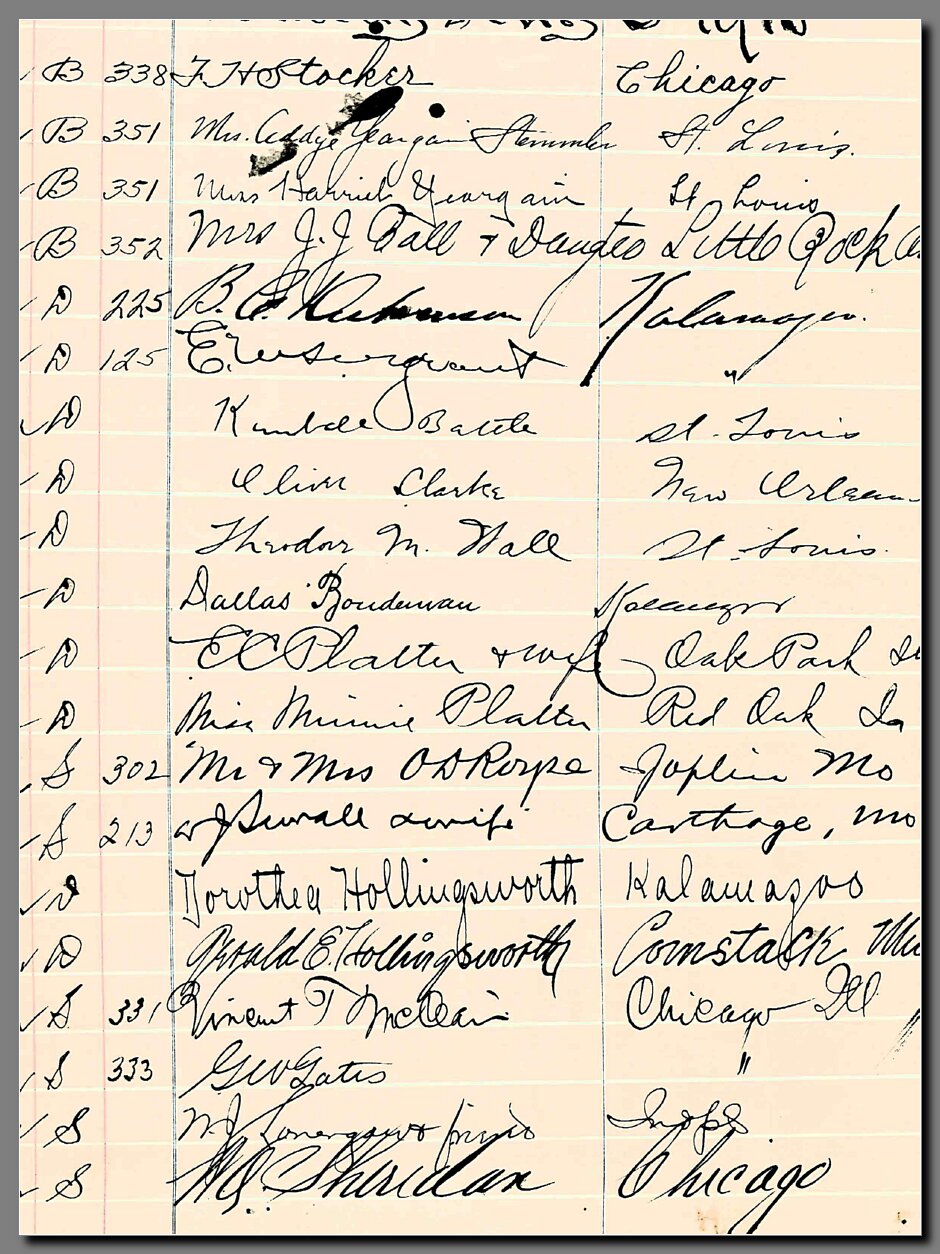 B 338 F. H Stocker Chicago
B 351 Mrs. Addye Yeargain Stemmler St. Louis.
B 351 Mrs Harriet Yeargain St Louis
B 352 Mrs J. J. Ball + Daugter Little Rock
D 225 B. Kalamazoo.
D 125 E. W Sergeant "
D Kimball Battle St. Louis
D Oliver Clarke New Orleans
D Theodore M. Wall St. Louis.
D Dallas Boudeman Kalamazoo
D E C Platter + wife Oak Park Ill
D Miss Minnie Platter Red Oak Ia
S 302 Mr & Mrs O D Royse Joplin Mo
S 213 W J Sewall & wife Carthage, Mo
D Dorothea Hollingsworth Kalamazoo
D Gerald E. Hollingsworth Comstock Mi
S 331 Vincent T McClain Chicago Ill
S 333 Geo Gates " "
S Indpls
S Sheridan Chicago